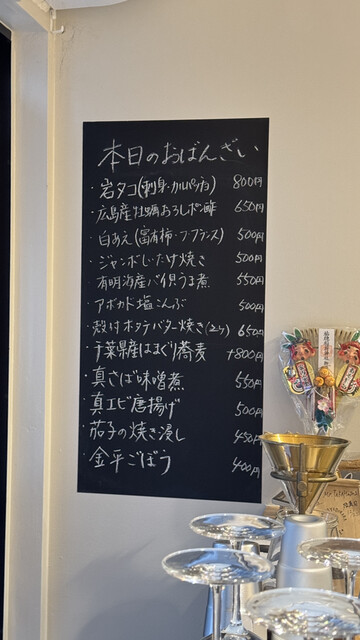 本日のおばんざい
・岩タコ(刺身・カルパッチョ) 800円
・広島産牡蠣おろしポン酢 650円
・白あえ(富有柿・ラ・フランス) 500円
・ジャンボしいたけ焼き 500円
・有明海産バイ貝うま煮 550円
・アボカド塩こんぶ 500円
・殻付ホタテバター焼き(2ヶ) 650円
・千葉県産はまぐり蕎麦 +800円
・真さば味噌煮 550円
・真エビ唐揚げ 500円
・茄子の焼き浸し 450円
・金平ごぼう 400円